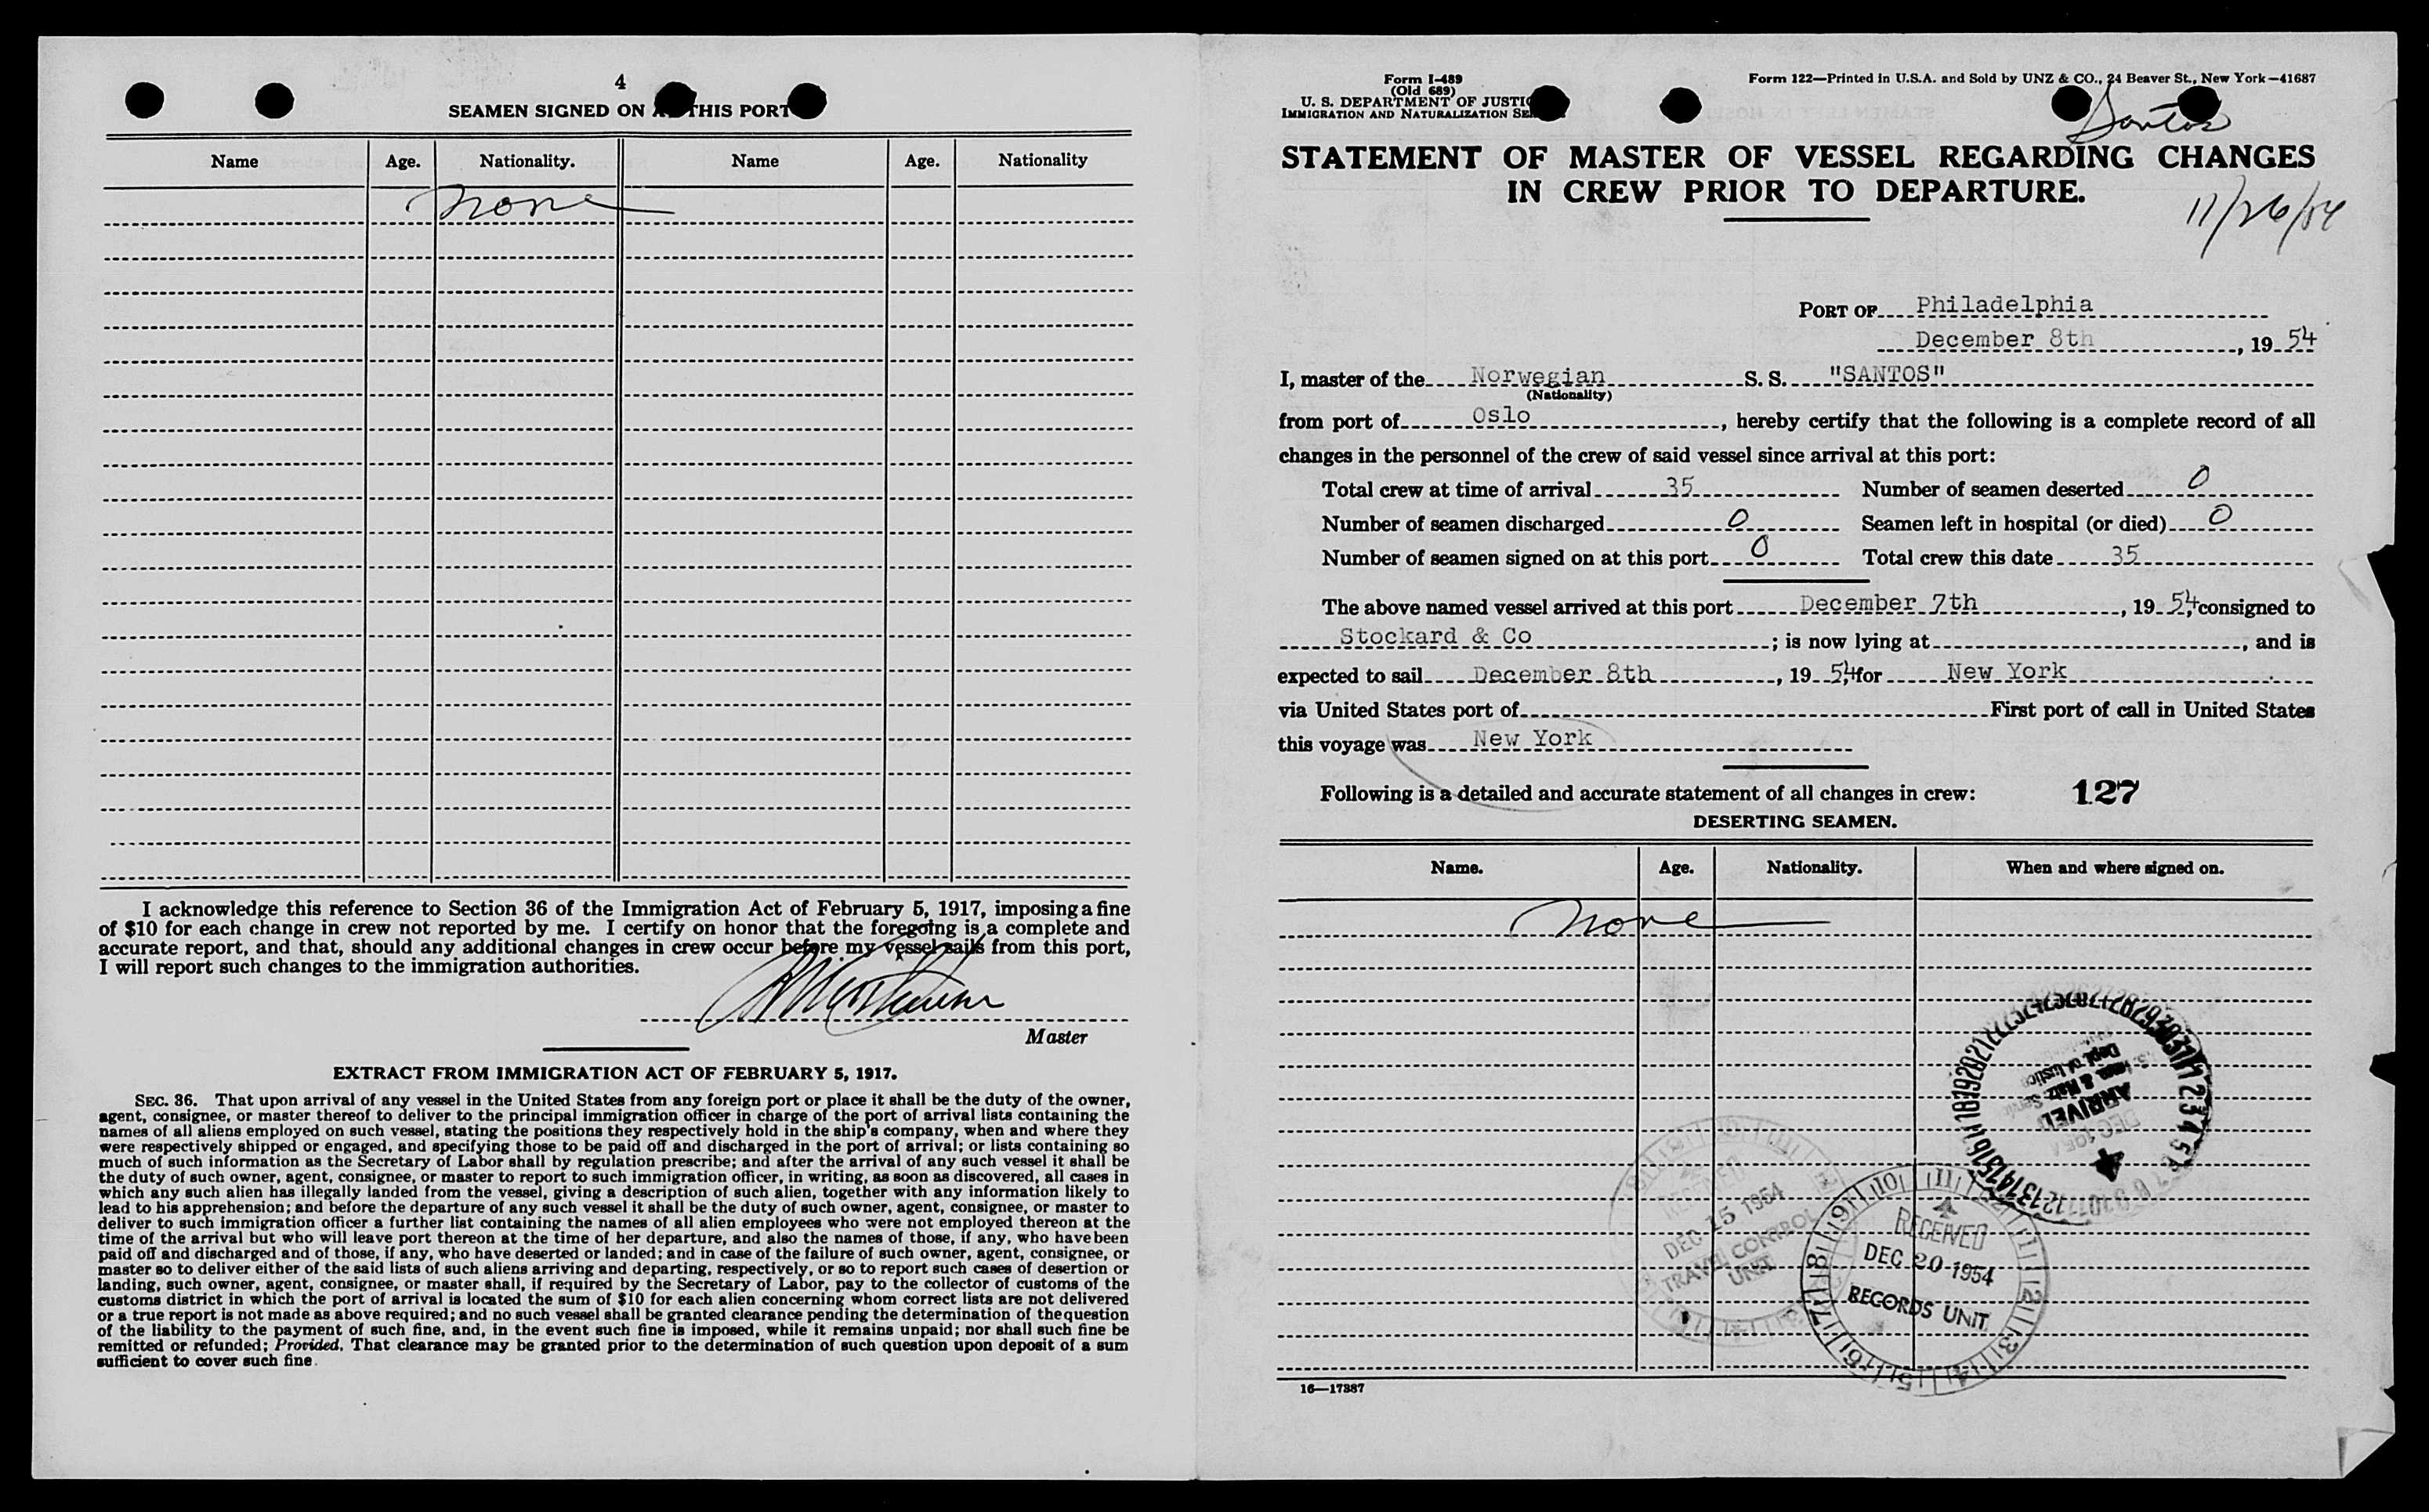 4
SEAMEN SIGNED ON THIS PORT
Name Age. Nationality. Name Age. Nationality
None
I acknowledge this reference to Section 36 of the Immigration Act of February 5, 1917, imposing a fine
of $10 for each change in crew not reported by me. I certify on honor that the foregoing is a complete and
accurate report, and that, should any additional changes in crew occur before my vessel sails from this port,
I will report such changes to the immigration authorities.
Master
EXTRACT FROM IMMIGRATION ACT OF FEBRUARY 5, 1917.
SEC. 36. That upon arrival of any vessel in the United States from any foreign port or place it shall be the duty of the owner,
agent, consignee, or master thereof to deliver to the principal immigration officer in charge of the port of arrival lists containing the
names of all aliens employed on such vessel, stating the positions they respectively hold in the ship's company, when and where they
were respectively shipped or engaged, and specifying those to be paid off and discharged in the port of arrival; or lists containing so
much of such information as the Secretary of Labor shall by regulation prescribe; and after the arrival of any such vessel it shall be
the duty of such owner, agent, consignee, or master to report to such immigration officer, in writing, as soon as discovered, all cases in
which any such alien has illegally landed from the vessel, giving a description of such alien, together with any information likely to
lead to his apprehension; and before the departure of any such vessel it shall be the duty of such owner, agent, consignee, or master to
deliver to such immigration officer a further list containing the names of all alien employees who were not employed thereon at the
time of the arrival but who will leave port thereon at the time of her departure, and also the names of those, if any, who have been
paid off and discharged and of those, if any, who have deserted or landed; and in case of the failure of such owner, agent, consignee, or
master so to deliver either of the said lists of such aliens arriving and departing, respectively, or so to report such cases of desertion or
landing, such owner, agent, consignee, or master shall, if required by the Secretary of Labor, pay to the collector of customs of the
customs district in which the port of arrival is located the sum of $10 for each alien concerning whom correct lists are not delivered
or a true report is not made as above required; and no such vessel shall be granted clearance pending the determination of the question
of the liability to the payment of such fine, and, in the event such fine is imposed, while it remains unpaid; nor shall such fine be
remitted or refunded; Provided, That clearance may be granted prior to the determination of such question upon deposit of a sum
sufficient to cover such fine.
Form I-489
(Old 689)
U. S. DEPARTMENT OF JUSTI
IMMIGRATION AND NATURALIZATION SE
Form 122—Printed in U.S.A. and Sold by UNZ & CO., 24 Beaver St., New York—41687
Santos
STATEMENT OF MASTER OF VESSEL REGARDING CHANGES
IN CREW PRIOR TO DEPARTURE.
11/26/54
PORT OF Philadelphia
December 8th, 19 54
I, master of the Norwegian S. S. "SANTOS"
(Nationality)
from port of Oslo, hereby certify that the following is a complete record of all
changes in the personnel of the crew of said vessel since arrival at this port:
Total crew at time of arrival 35 Number of seamen deserted 0
Number of seamen discharged 0 Seamen left in hospital (or died) 0
Number of seamen signed on at this port 0 Total crew this date 35
The above named vessel arrived at this port December 7th, 19 54, consigned to
Stockard & Co; is now lying at , and is
expected to sail December 8th, 19 54, for New York
via United States port of First port of call in United States
this voyage was New York
Following is a detailed and accurate statement of all changes in crew: 127
DESERTING SEAMEN.
Name. Age. Nationality. When and where signed on.
None
Dept of Justice
ARRIVED
RECEIVED
DEC 15 1954
TRAVEL CONTROL
UNIT
RECEIVED
DEC 20 1954
RECORDS UNIT
16—17387